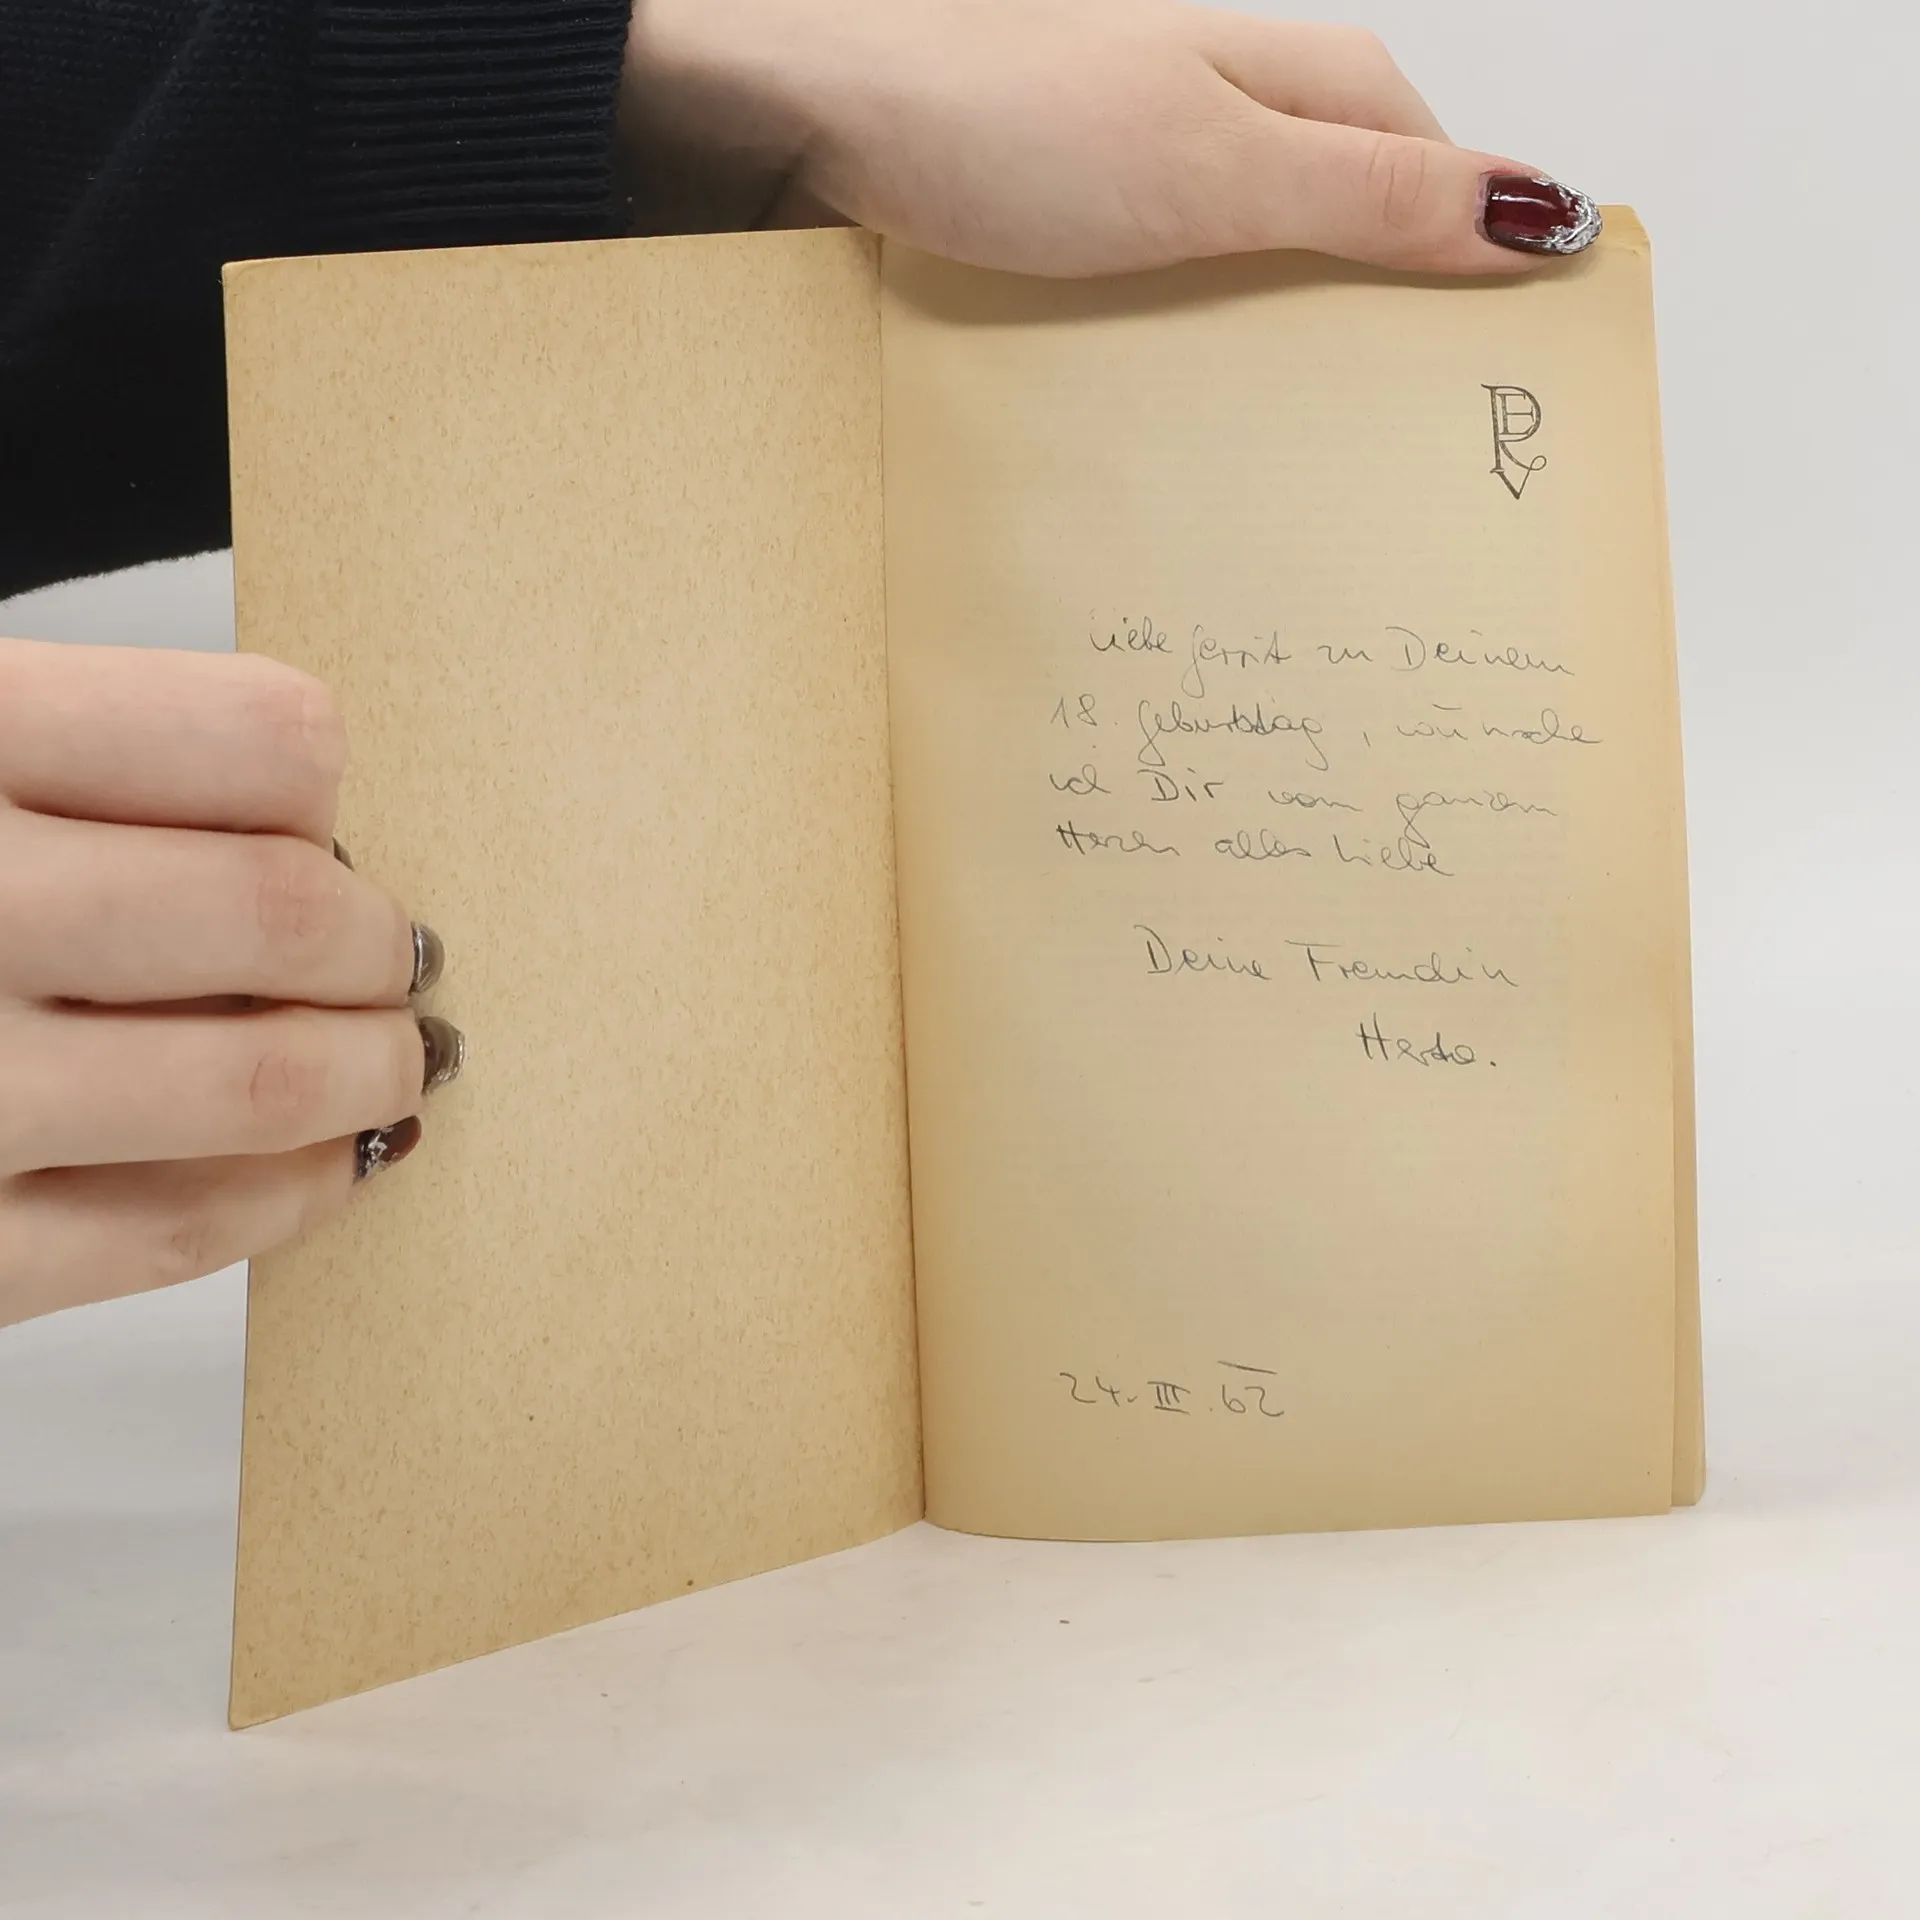 Liebe Gerrit zu Deinem
18. Geburtstag, wünsche
ich Dir vom ganzen
Herzen alles Liebe
Deine Freundin
Herta.
24. III. 62